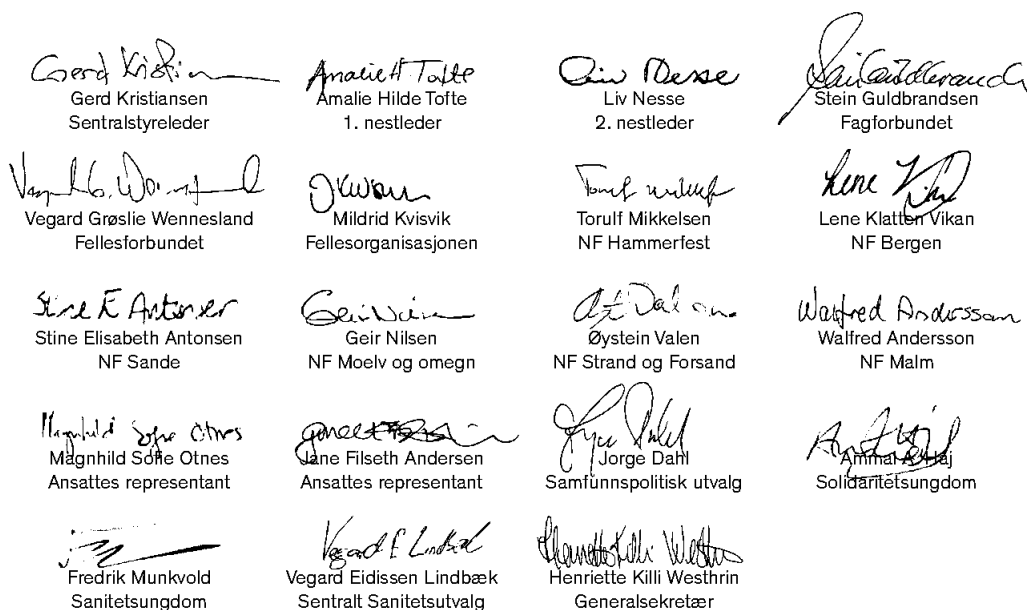 Gerd Kristiansen
Sentralstyreleder
Amalie H Tofte
Amalie Hilde Tofte
1. nestleder
Liv Nesse
Liv Nesse
2. nestleder
Stein Guldbrandsen
Fagforbundet
Vegard Grøslie Wennesland
Fellesforbundet
Mildrid Kvisvik
Fellesorganisasjonen
Torulf Mikkelsen
NF Hammerfest
Lene Klatten Vikan
NF Bergen
Stine E Antonsen
Stine Elisabeth Antonsen
NF Sande
Geir Nilsen
NF Moelv og omegn
Øystein Valen
NF Strand og Forsand
Walfred Andersson
Walfred Andersson
NF Malm
Magnhild Sofie Otnes
Magnhild Sofie Otnes
Ansattes representant
Jane Filseth Andersen
Ansattes representant
Jorge Dahl
Samfunnspolitisk utvalg
Solidaritetsungdom
Fredrik Munkvold
Sanitetsungdom
Vegard E Lindbæk
Vegard Eidissen Lindbæk
Sentralt Sanitetsutvalg
Henriette Killi Westhrin
Henriette Killi Westhrin
Generalsekretær